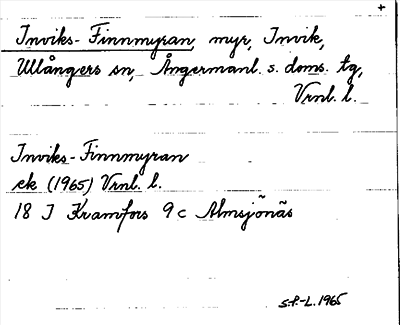 +
Inviks-Finnmyran, myr, Invik,
Ullångers sn, Ångermanl. s. doms. tg,
Vrnl. l.
Inviks-Finnmyran
ek (1965) Vrnl. l.
18 J Kramfors 9 c Almsjönäs
S.P.-L. 1965